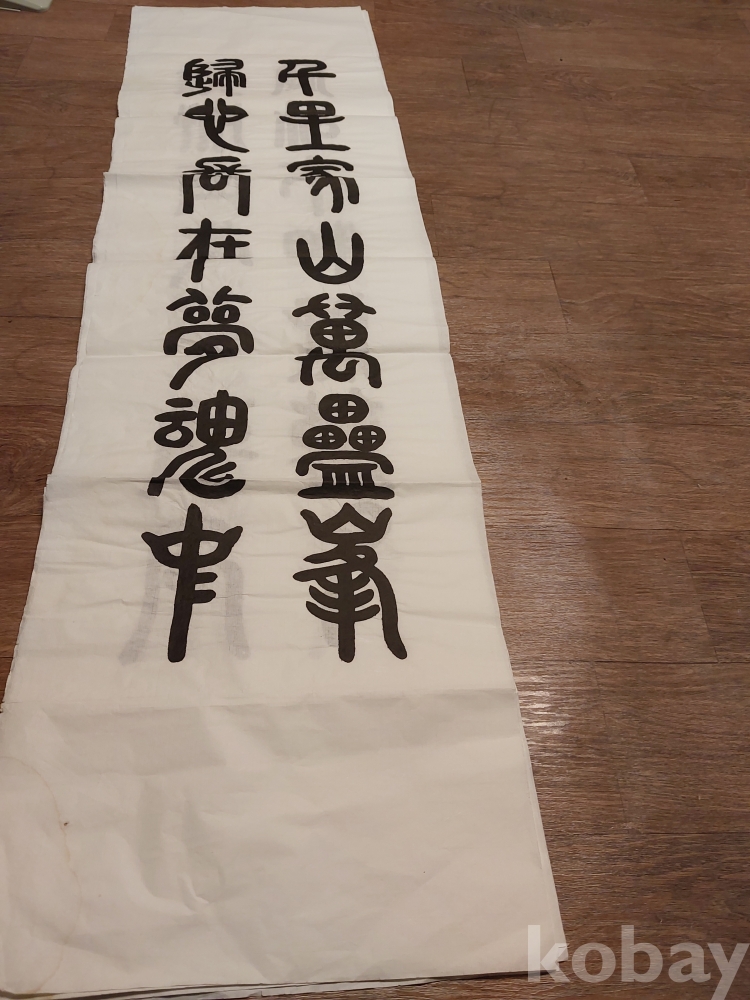 千里家山萬疊峯
歸心長在夢魂中
kobay